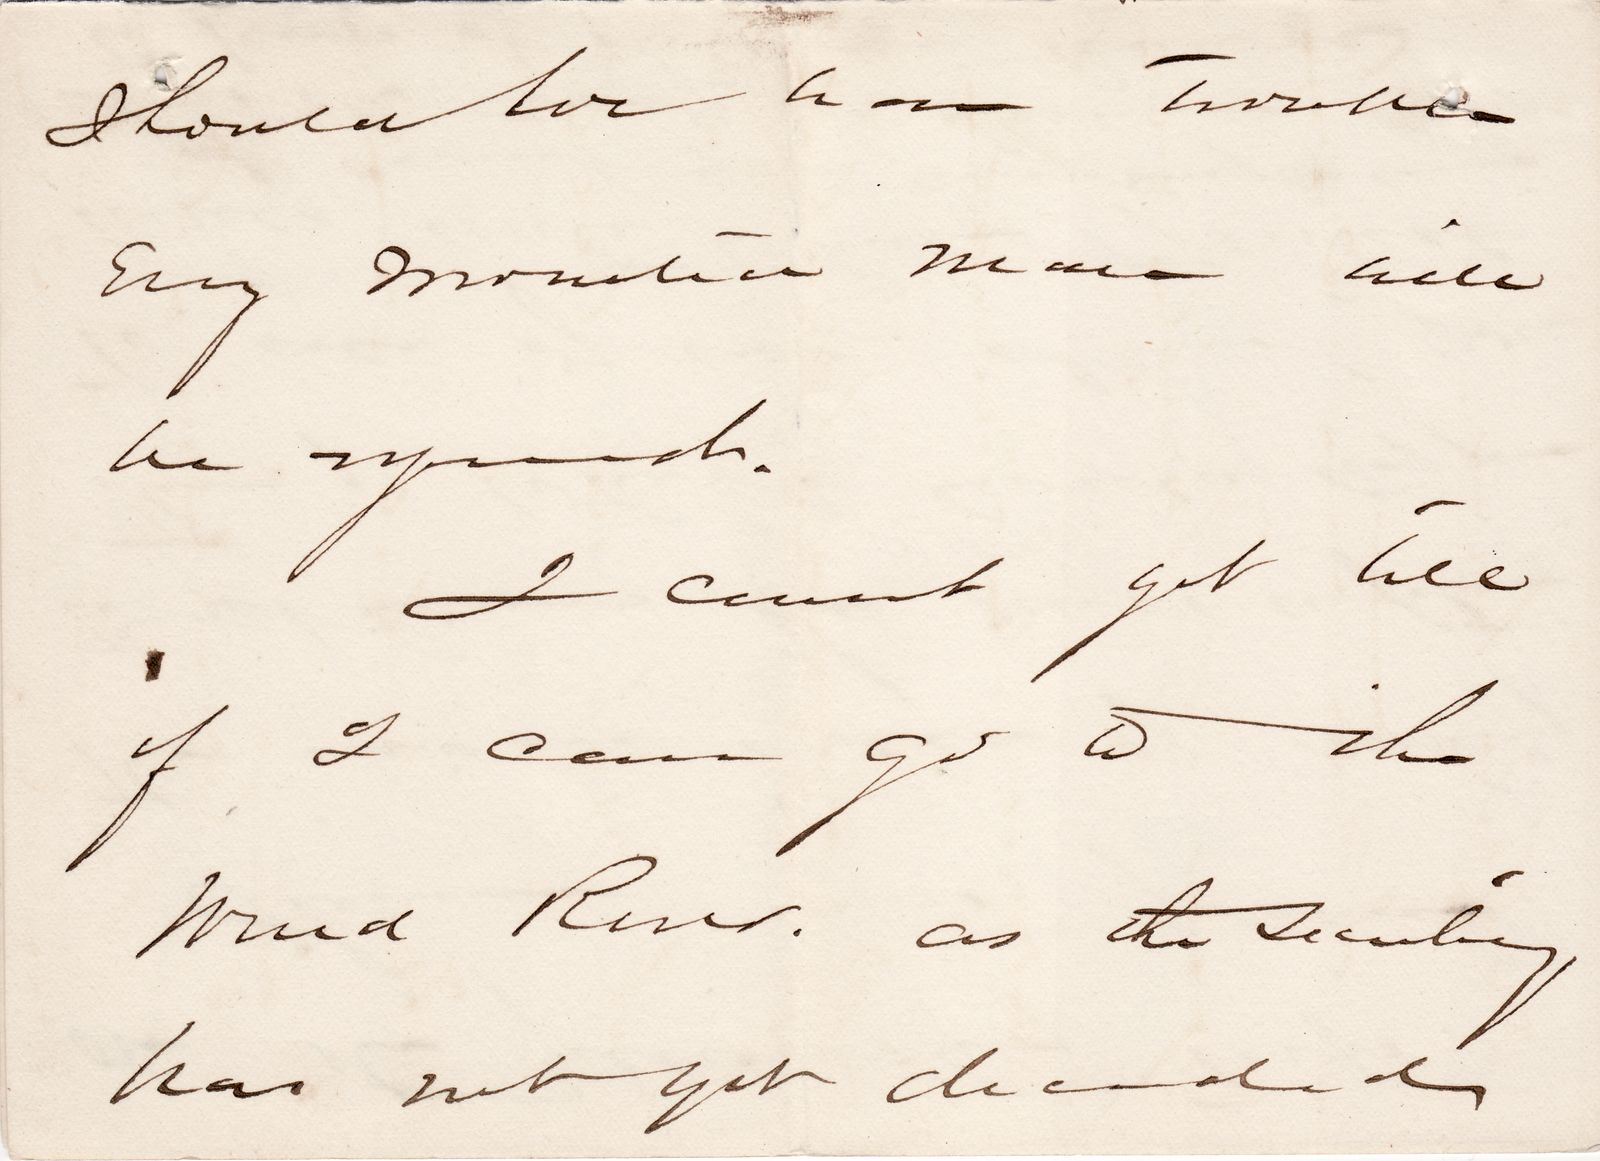 Should there be trouble
Every mounted man will
be required.
I cannot yet tell
if I can go to the
Wind River. as the Secretary
has not yet decided,